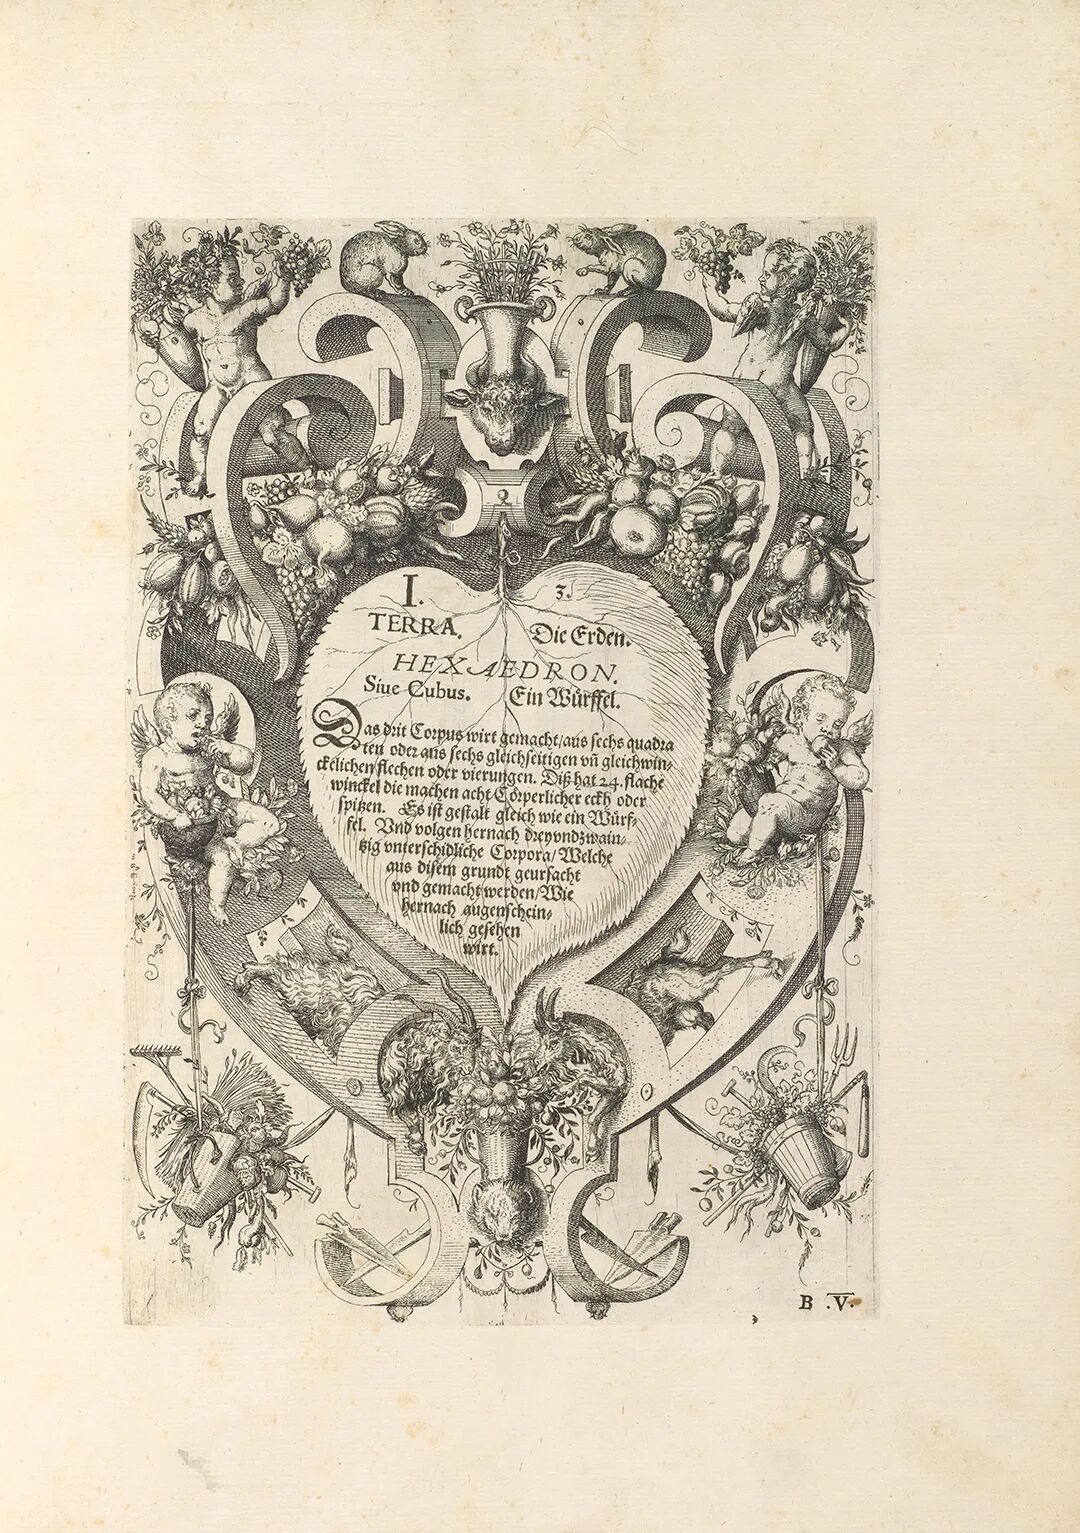 I. 3.
TERRA. Die Erden.
HEXAEDRON.
Siue Cubus. Ein Würffel.
Das drit Corpus wirt gemacht/aus sechs quadra
ten oder aus sechs gleichseitigen vñ gleichwin⸗
ckelichen flechen oder vierungen. Diß hat 24. flache
winckel die machen acht Cörperlicher eckh oder
spitzen. Es ist gestalt gleich wie ein Würf⸗
fel. Vnd volgen hernach dreyvndzwain⸗
tzig vnterschidliche Corpora/Welche
aus disem grundt geursacht
vnd gemacht werden/Wie
hernach augenschein⸗
lich gesehen
wirt.
B .V.